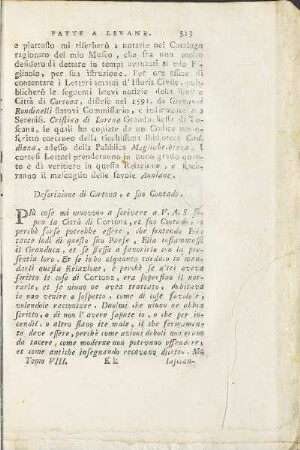 FATTE A LEVANE. 513
e piuttosto mi riserberò a notarle nel Catalogo
ragionato del mio Museo, che fra non molto
desidero di dettare in tempi avanzati al mio Fi-
gliuolo, per sua istruzione. Per ora affine di
contentare i Lettori amanti d'Istoria Civile, pub-
blicherò le seguenti brevi notizie della
Città di Cortona, distese nel 1591. da Giovanni
Rondinelli statovi Commissario, e indirizzate alla
Sereniss. Cristina di Lorena Granduchessa di To-
scana, le quali ho copiate da un Codice
Scritto contemporaneo della ricchissima Biblioteca Gad-
diana, adesso della Pubblica Magliabechiana. I
cortesi Lettori prenderanno in buon grado quanto
è di veritiero in questa Relazione, e
ranno il mescuglio delle favole Anniane.
Descrizione di Cortona, e suo Contado.
Più cose mi muovono a scrivere a V. A. S. so-
pra la Città di Cortona, et suo Contado,
perchè forse potrebbe essere, che sentendo
cose lodi di questo suo Paese, Ella infiammasse
il Granduca, et sè stessa a favorirla con la pre-
senzia loro. Et se io ho alquanto tardato in man-
darli questa Relazione, è perchè se altri aveva
scritto le cose di Cortona, era superfluo il nar-
rarle, et se niuno ne aveva trattato, dubitava
io non venire a sospetto, come di cose favolose,
volendole raccontare. Dodici che niuno ne abbia
scritto, o di non l'avere saputo io, o che per in-
cendii, o altro siano ite male, il che fermamente
deve essere, perchè come azioni deboli non erano
da tacere, come moderne non potevano offendere,
et come antiche insegnando recavano diletto. Ma
Tomo VIII. Kk lascian-